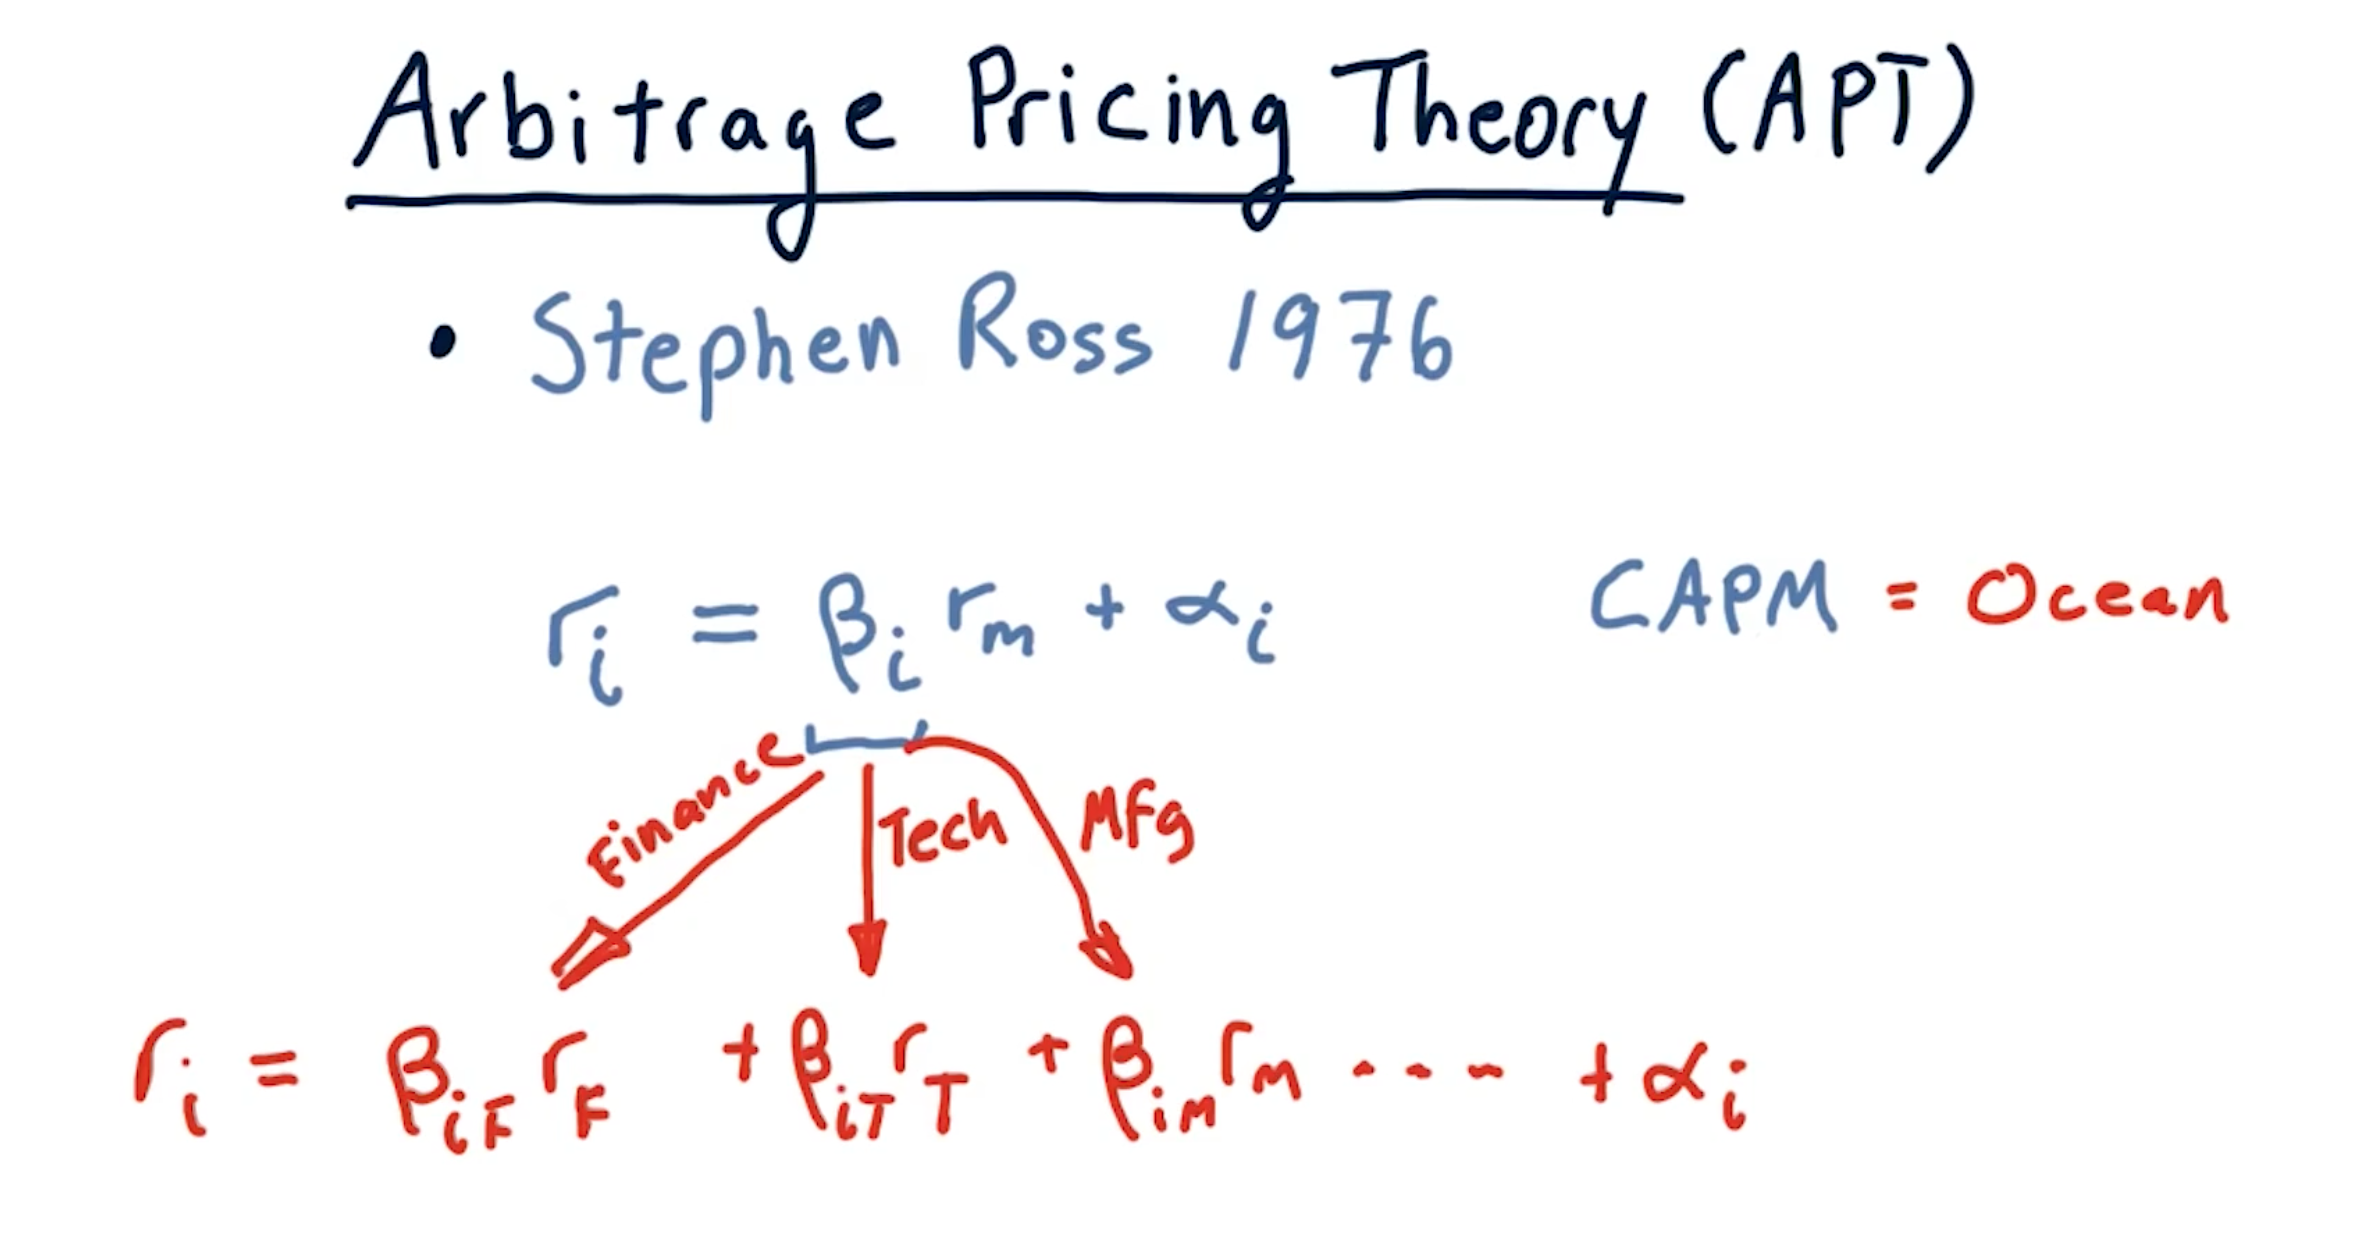 Arbitrage Pricing Theory (APT)
• Stephen Ross 1976
rᵢ = βᵢ rₘ + αᵢ
CAPM = Ocean
Finance
Tech
MFg
rᵢ = β_iF r_F + β_iT r_T + β_iM r_M ... + αᵢ